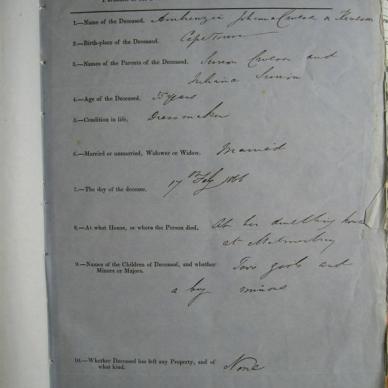 1.—Name of the Deceased.
2.—Birth-place of the Deceased. Cape Town
3.—Names of the Parents of the Deceased. Simon and
Juliana Simon
4.—Age of the Deceased. 35 years
5.—Condition in life. Dressmaker
6.—Married or unmarried, Widower or Widow. Married
7.—The day of the decease. 17th Feby 1866
8.—At what House, or where the Person died. At her dwelling house
at Malmesbury
9.—Names of the Children of Deceased, and whether Two girls and
Minors or Majors.
a boy minors
10.—Whether Deceased has left any Property, and of None
what kind.